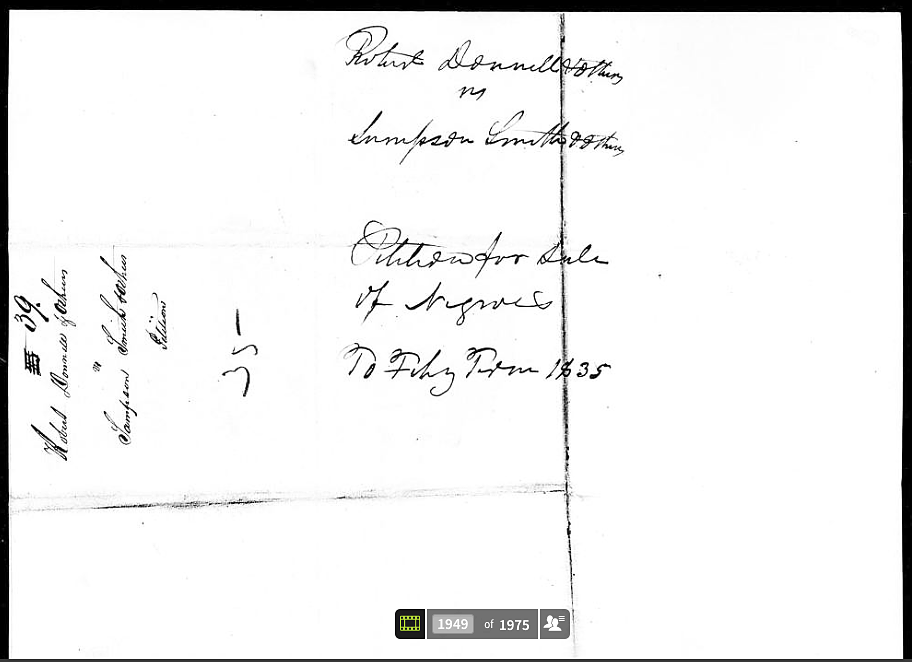 Robert Donnell & others
vs
Sampson Smith & others
Petition for Sale
of Negroes
To Feby Term 1835
39.
Robert Donnell & others
vs
Sampson Smith & others
Petition
35
1949 of 1975